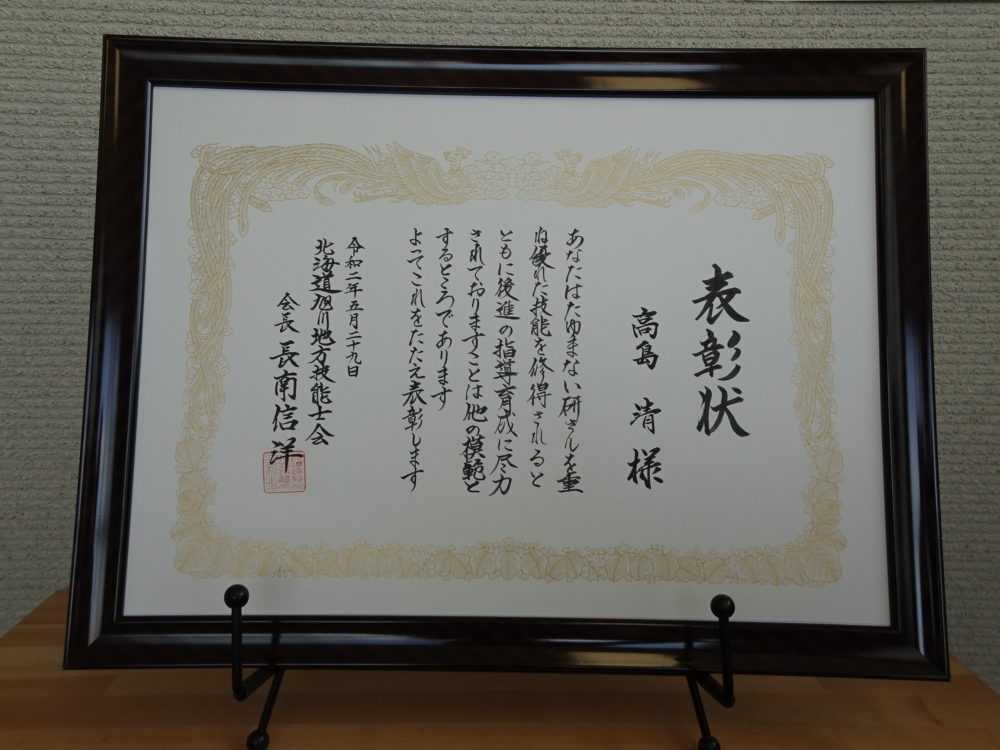 表彰状
高島 清 様
あなたはたゆまない研さんを重
ね優れた技能を修得されると
ともに後進の指導育成に尽力
されておりますことは他の模範と
するところであります
よってこれをたたえ表彰します
令和二年五月二十九日
北海道旭川地方技能士会
会長 長南信洋